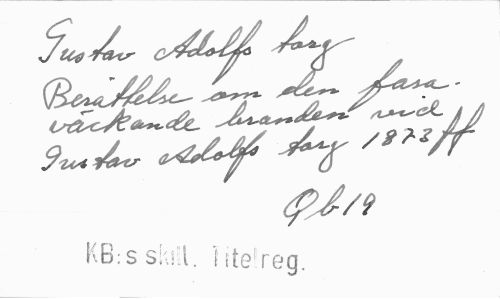 Gustav Adolfs torg
Berättelse om den fasa-
väckande branden vid
Gustav Adolfs torg 1873 ff
Qb 19
KB:s skill. Titelreg.